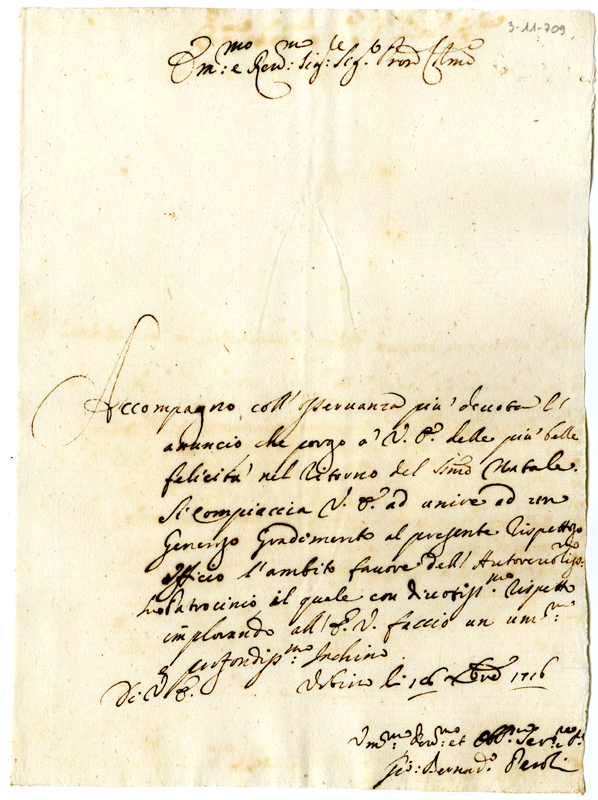 3-11-709
Em:mo e Rev:mo Sig:re Sig:r Pron Colmo
Accompagno coll' osservanza più devota l'
anuncio che porgo à V. E. delle più belle
felicità nel ritorno del S:mo Natale.
Si compiaccia V. E. ad unire ad un
Generoso Gradimento al presente rispettoso
officio l'ambito favore dell' Autorevoliss:mo
Patrocinio il quale con divotiss:mo rispetto
implorando all' E. V. faccio un um:mo
e profondiss:mo Inchino
Di V. E. Urbino li 16 Xbre 1716
Um:mo Dev:mo et Obb:mo Ser:re
Gio: Bernard:o Paroli